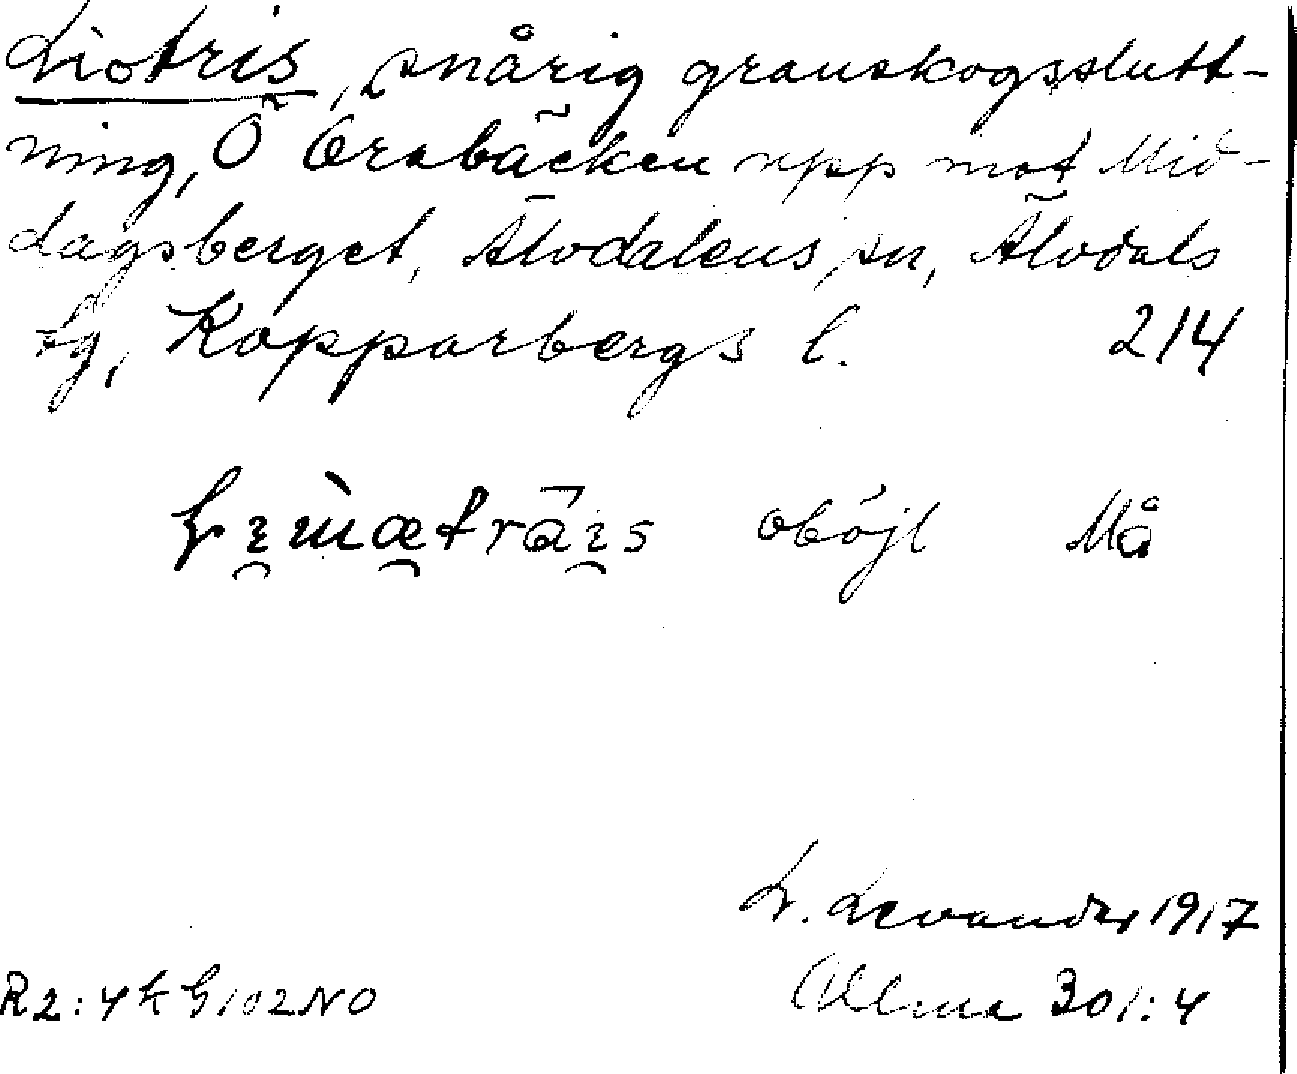 Liotris, snårig granskogsslutt-
ning, Ö Örabäcken upp mot Mid-
dagsberget, Älvdalens sn, Älvdals
tg, Kopparbergs l. 214
obojl Må
L. Levander 1917
Ullma 301:4
R2:4k G102NO